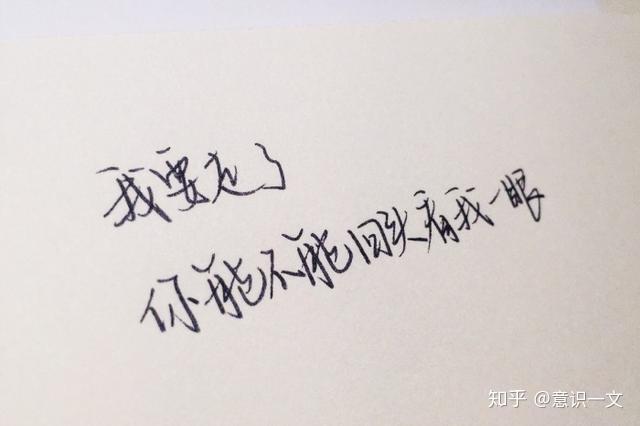 我要走了
你能不能回头看我一眼
知乎 @意识一文